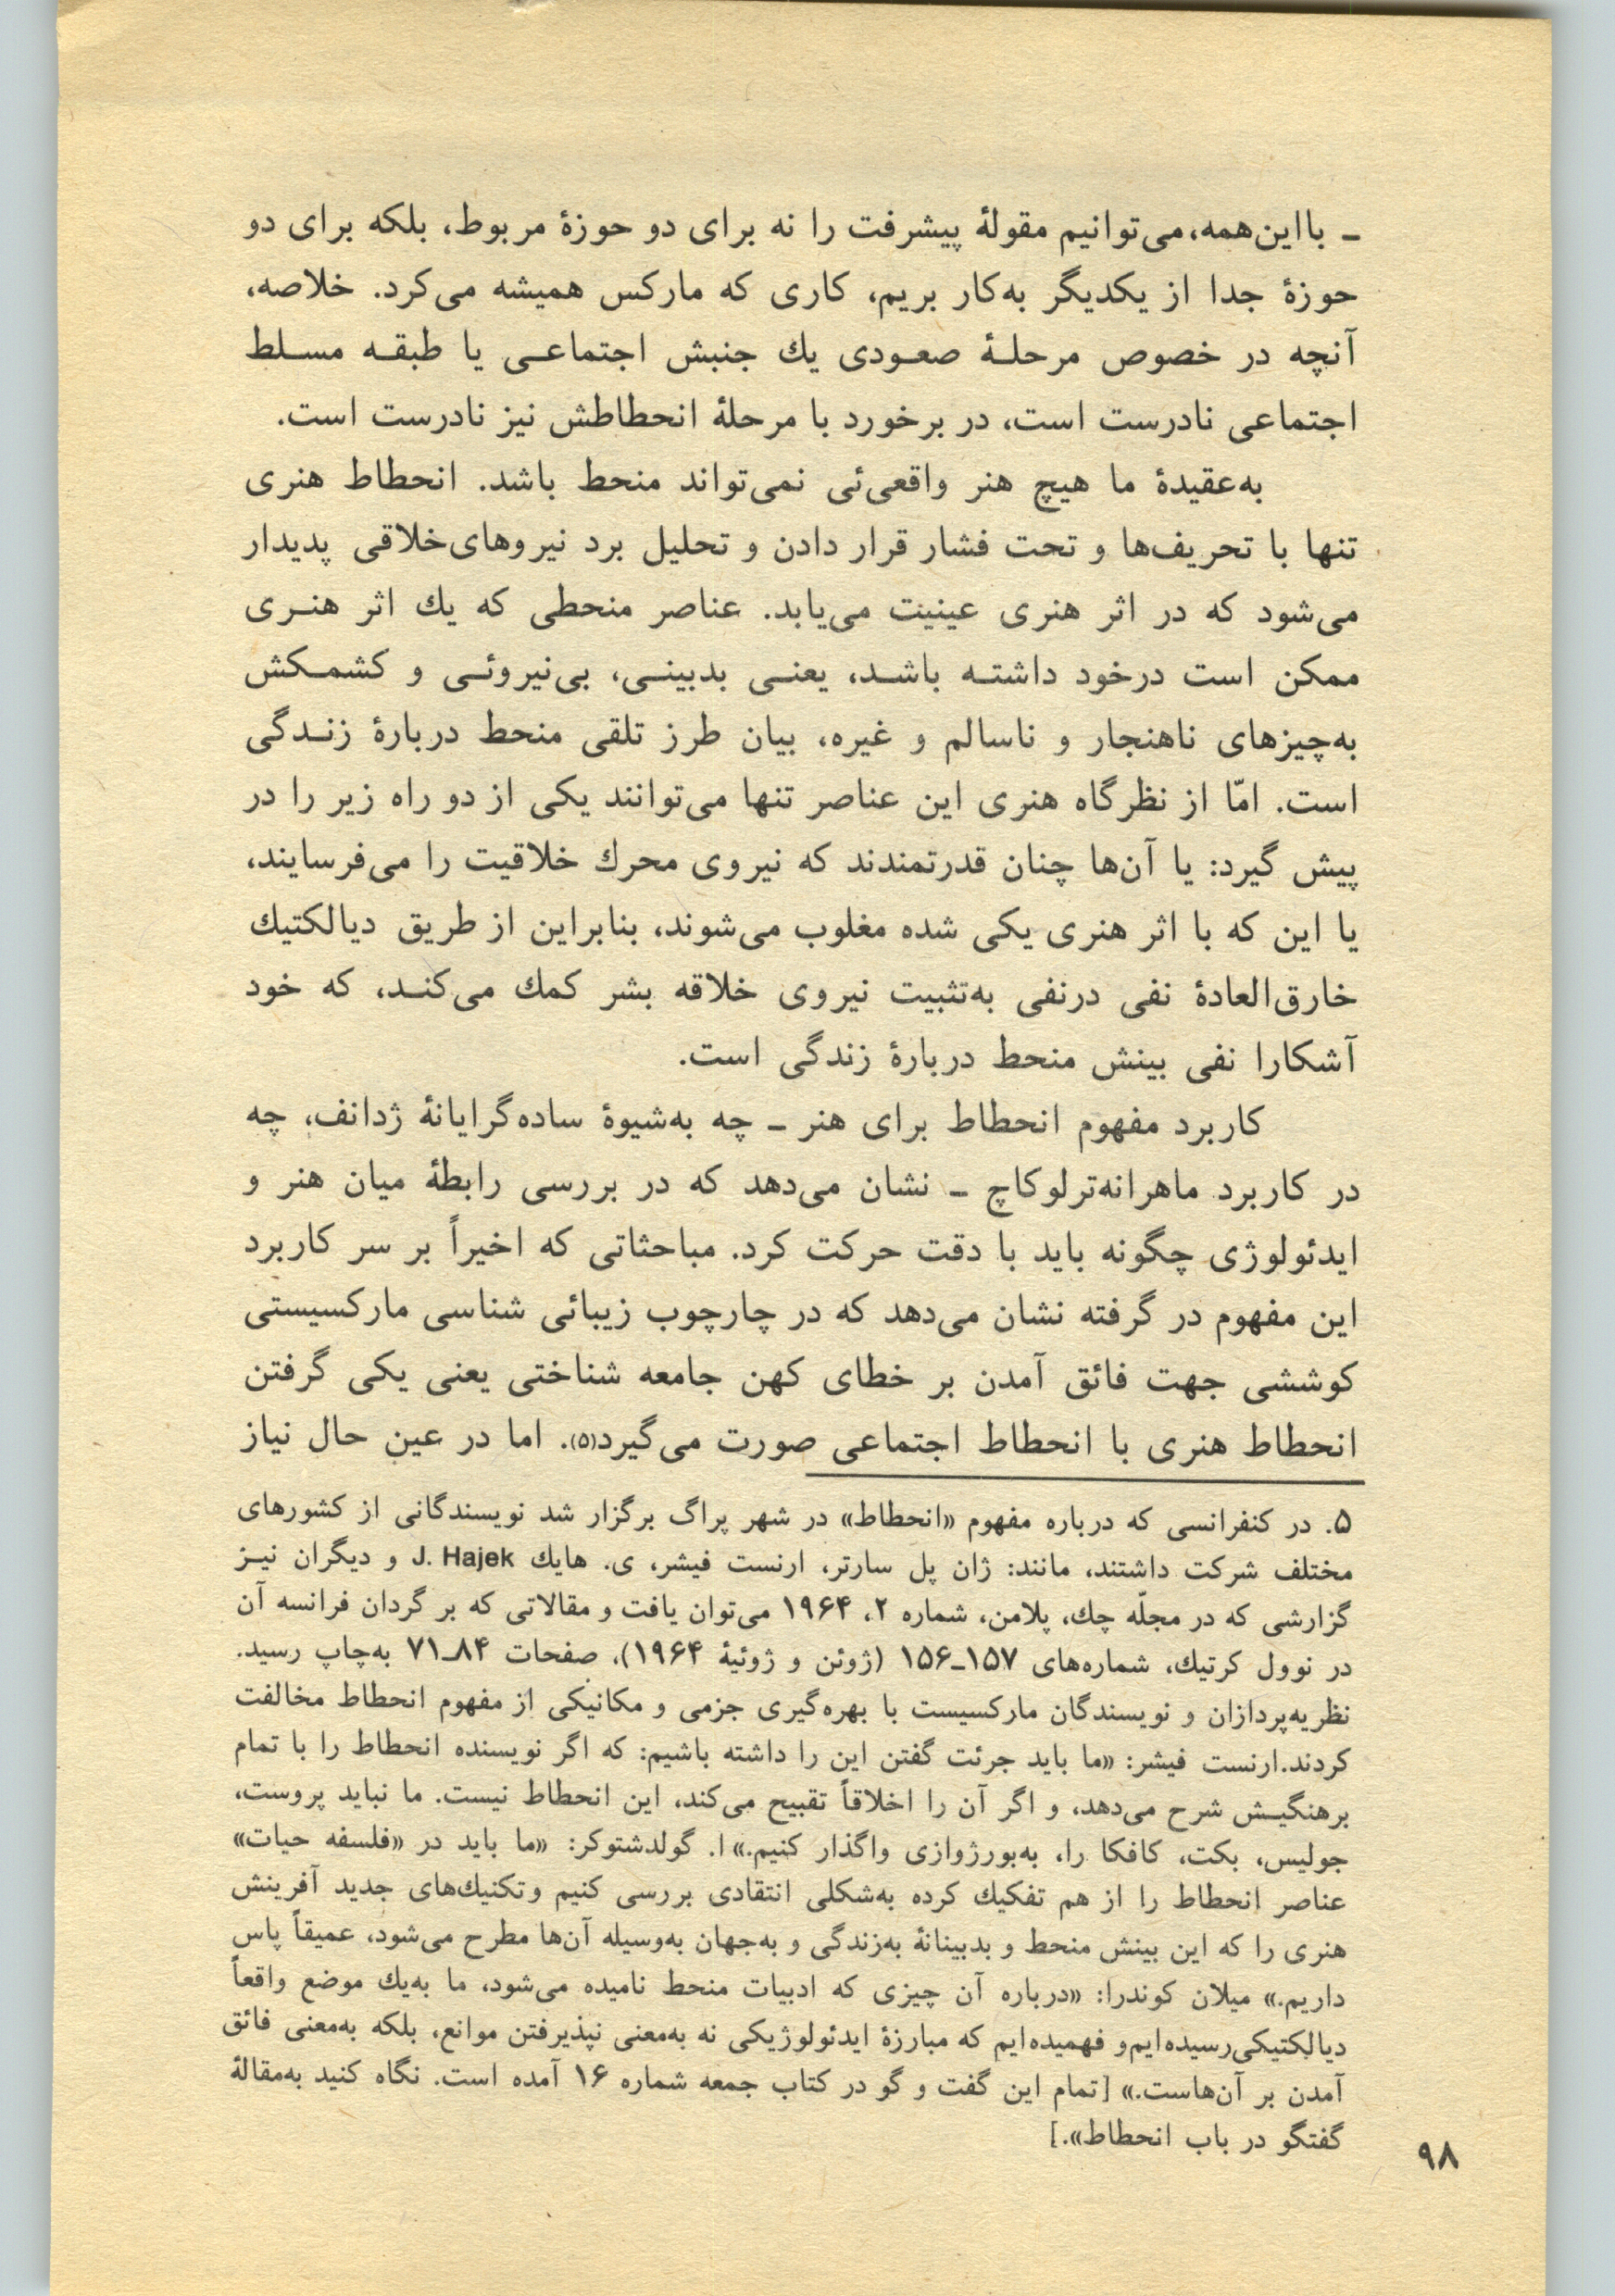 ـ بااین‌همه، می‌توانیم مقولهٔ پیشرفت را نه برای دو حوزهٔ مربوط، بلکه برای دو
حوزهٔ جدا از یکدیگر به‌کار بریم، کاری که مارکس همیشه می‌کرد. خلاصه،
آنچه در خصوص مرحلـهٔ صعـودی یك جنبش اجتماعـی یا طبقـه مسـلط
اجتماعی نادرست است، در برخورد با مرحلهٔ انحطاطش نیز نادرست است.
به‌عقیدهٔ ما هیچ هنر واقعی‌ئی نمی‌تواند منحط باشد. انحطاط هنری
تنها با تحریف‌ها و تحت فشار قرار دادن و تحلیل برد نیروهای‌خلاقی پدیدار
می‌شود که در اثر هنری عینیت می‌یابد. عناصر منحطی که یك اثر هنـری
ممکن است درخود داشتـه باشـد، یعنـی بدبینـی، بی‌نیروئـی و کشمـکش
به‌چیزهای ناهنجار و ناسالم و غیره، بیان طرز تلقی منحط دربارهٔ زنـدگی
است. امّا از نظرگاه هنری این عناصر تنها می‌توانند یکی از دو راه زیر را در
پیش گیرد: یا آن‌ها چنان قدرتمندند که نیروی محرك خلاقیت را می‌فرسایند،
یا این که با اثر هنری یکی شده مغلوب می‌شوند، بنابراین از طریق دیالکتیك
خارق‌العادهٔ نفی درنفی به‌تثبیت نیروی خلاقه بشر کمك می‌کنـد، که خود
آشکارا نفی بینش منحط دربارهٔ زندگی است.
کاربرد مفهوم انحطاط برای هنر ـ چه به‌شیوهٔ ساده‌گرایانهٔ ژدانف، چه
در کاربرد ماهرانه‌ترلوکاچ ـ نشان می‌دهد که در بررسی رابطهٔ میان هنر و
ایدئولوژی چگونه باید با دقت حرکت کرد. مباحثاتی که اخیراً بر سر کاربرد
این مفهوم در گرفته نشان می‌دهد که در چارچوب زیبائی شناسی مارکسیستی
کوششی جهت فائق آمدن بر خطای کهن جامعه شناختی یعنی یکی گرفتن
انحطاط هنری با انحطاط اجتماعی صورت می‌گیرد(۵). اما در عین حال نیاز
۵. در کنفرانسی که درباره مفهوم «انحطاط» در شهر پراگ برگزار شد نویسندگانی از کشورهای
مختلف شرکت داشتند، مانند: ژان پل سارتر، ارنست فیشر، ی. هایك J. Hajek و دیگران نیـز
گزارشی که در مجلّه چك، پلامن، شماره ۲، ۱۹۶۴ می‌توان یافت و مقالاتی که بر گردان فرانسه آن
در نوول کرتیك، شماره‌های ۱۵۷ـ۱۵۶ (ژوئن و ژوئیهٔ ۱۹۶۴)، صفحات ۸۴ـ۷۱ به‌چاپ رسید.
نظریه‌پردازان و نویسندگان مارکسیست با بهره‌گیری جزمی و مکانیکی از مفهوم انحطاط مخالفت
کردند.ارنست فیشر: «ما باید جرئت گفتن این را داشته باشیم: که اگر نویسنده انحطاط را با تمام
برهنگیـش شرح می‌دهد، و اگر آن را اخلاقاً تقبیح می‌کند، این انحطاط نیست. ما نباید پروست،
جولیس، بکت، کافکا را، به‌بورژوازی واگذار کنیم.» ا. گولدشتوکر: «ما باید در «فلسفه حیات»
عناصر انحطاط را از هم تفکیك کرده به‌شکلی انتقادی بررسی کنیم وتکنیك‌های جدید آفرینش
هنری را که این بینش منحط و بدبینانهٔ به‌زندگی و به‌جهان به‌وسیله آن‌ها مطرح می‌شود، عمیقاً پاس
داریم.» میلان کوندرا: «درباره آن چیزی که ادبیات منحط نامیده می‌شود، ما به‌یك موضع واقعاً
دیالکتیکی‌رسیده‌ایم‌و فهمیده‌ایم که مبارزهٔ ایدئولوژیکی نه به‌معنی نپذیرفتن موانع، بلکه به‌معنی فائق
آمدن بر آن‌هاست.» [تمام این گفت و گو در کتاب جمعه شماره ۱۶ آمده است. نگاه کنید به‌مقالهٔ
گفتگو در باب انحطاط».]
۹۸